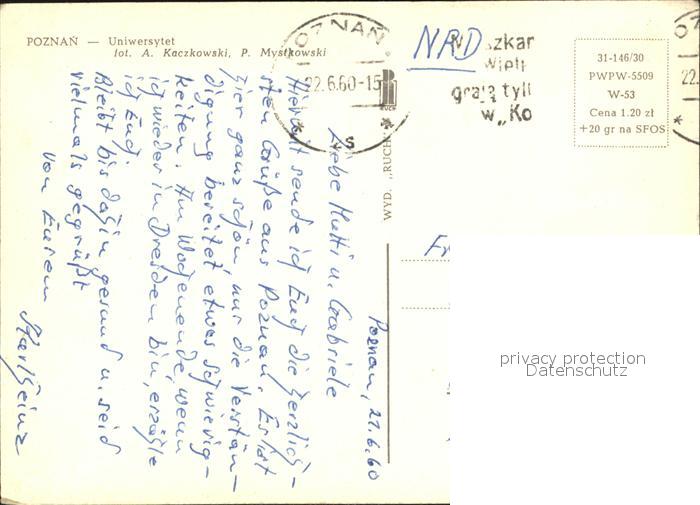 POZNAŃ — Uniwersytet
fot. A. Kaczkowski, P. Mystkowski
POZNAŃ
22.6.60-15
S
NRD
szkar
grają tyl
w „Ko
31-146/30
PWPW-5509
W-53
Cena 1.20 zł
+20 gr na SFOS
22.
WYD. „RUCH"
RUCH
Poznan, 21.6.60
Liebe Mutti u. Gabriele
Hiermit sende ich Euch die herzlich-
sten Grüße aus Poznan. Es ist
hier ganz schön, nur die Verstän-
digung bereitet etwas Schwierig-
keiten. Am Wochenende, wenn
ich wieder in Dresden bin, erzähle
ich Euch.
Bleibt bis dahin gesund u. seid
vielmals gegrüßt
von Eurem
Karlheinz
privacy protection
Datenschutz